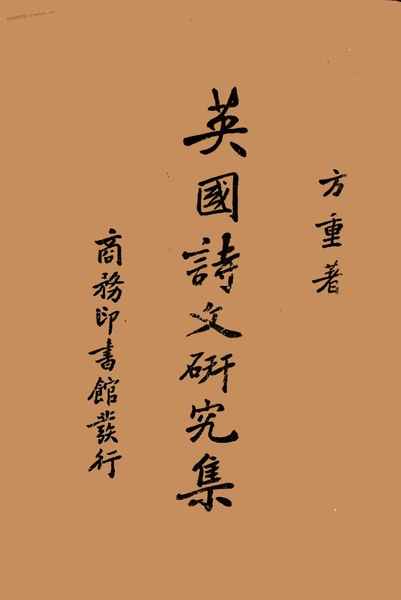 方重著
英國詩文研究集
商務印書館發行